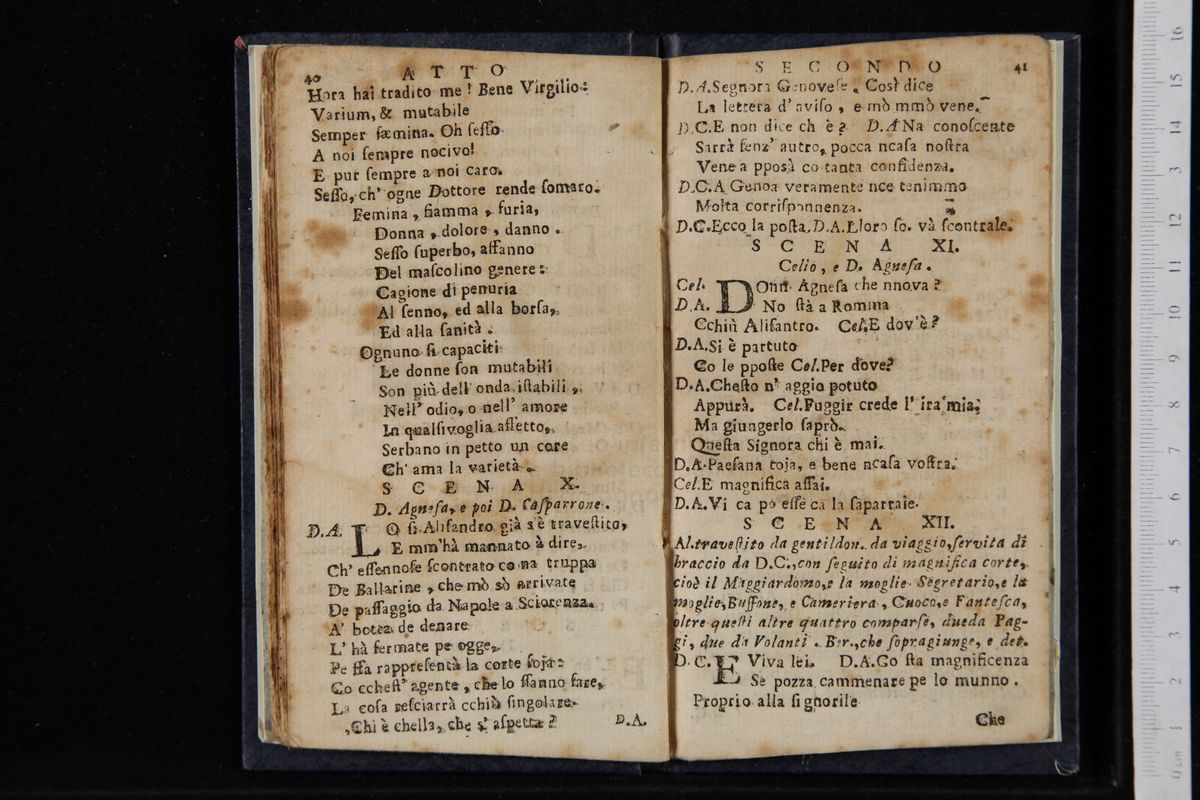 40
ATTO
Hora hai tradito me! Bene Virgilio:
Varium, & mutabile
Semper fæmina. Oh ſeſſo
A noi ſempre nocivo!
E pur ſempre a noi caro.
Seſſo, ch' ogne Dottore rende ſomaro.
Femina, fiamma, furia,
Donna, dolore, danno.
Seſſo ſuperbo, affanno
Del maſcolino genere:
Cagione di penuria
Al ſenno, ed alla borſa,
Ed alla ſanità.
Ognuno ſi capaciti
Le donne ſon mutabili
Son più dell' onda iſtabili,
Nell' odio, o nell' amore
In qualſivoglia affetto,
Serbano in petto un core
Ch' ama la varietà.
SCENA X.
D. Agneſa, e poi D. Caſparrone.
D.A. LO ſi Aliſandro già s'è traveſtito,
E mm'hà mannato à dire,
Ch' eſſennoſe ſcontrato co na truppa
De Ballarine, che mò sò arrivate
De paſſaggio da Napole a Sciorenza.
A' botta de denare
L' hà fermate pe ogge,
Pe ffa rappreſentà la corte ſoja:
Co ccheſt' agente, che lo ffanno fare,
La coſa reſciarrà cchiù ſingolare.
Chi è chella, che s' aſpetta?
D.A.
SECONDO
41
D.A.Segnora Genoveſe. Così dice
La lettera d'aviſo, e mò mmò vene.
D.C.E non dice ch è? D.A Na conoſcente
Sarrà ſenz' autro, pocca ncaſa noſtra
Vene a pposà co tanta confidenza.
D.C.A Genoa veramente nce tenimmo
Molta corriſponnenza.
D.C.Ecco la poſta. D.A.Lloro ſo. và ſcontrale.
SCENA XI.
Celio, e D. Agneſa.
Cel. DOnn' Agneſa che nnova?
D.A. No ſtà a Romma
Cchiù Aliſantro. Cel.E dov'è?
D.A.Si è partuto
Co le ppoſte Cel.Per dove?
D.A.Cheſto n' aggio potuto
Appurà. Cel.Fuggir crede l' ira mia;
Ma giungerlo ſaprò.
Queſta Signora chi è mai.
D.A.Paeſana toja, e bene ncaſa voſtra.
Cel.E magnifica aſſai.
D.A.Vi ca pò eſſe ca la ſapartaie.
SCENA XII.
Al.traveſtito da gentildon. da viaggio,ſervita di
braccio da D.C.,con ſeguito di magnifica corte,
cioè il Maggiardomo,e la moglie. Segretario,e la
moglie,Buffone, e Cameriera, Cuoco,e Fanteſca,
oltre queſti altre quattro comparſe, due da Pag-
gi, due da Volanti. Ber.,che ſopragiunge, e det.
D.C. EViva lei. D.A.Co ſta magnificenza
Se pozza cammenare pe lo munno.
Proprio alla ſignorile
Che